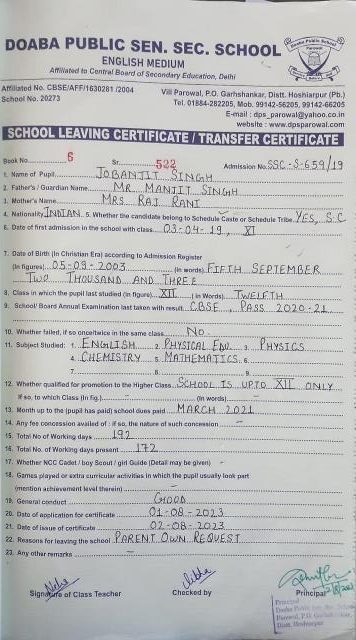 DOABA PUBLIC SEN. SEC. SCHOOL
ENGLISH MEDIUM
Affiliated to Central Board of Secondary Education, Delhi
Affiliated No. CBSE/AFF/1630281 /2004
School No. 20273
Vill Parowal, P.O. Garhshankar, Distt. Hoshiarpur (Pb.)
Tel. 01884-282205, Mob. 99142-56205, 99142-66205
E-mail : dps_parowal@yahoo.co.in
website : www.dpsparowal.com
SCHOOL LEAVING CERTIFICATE / TRANSFER CERTIFICATE
Book No. 6 Sr. 522 Admission No. SSC-S-659/19
1. Name of Pupil JOBANJIT SINGH
2. Father's / Guardian Name MR. MANJIT SINGH
3. Mother's Name MRS RAJ RANI
4. Nationality INDIAN 5. Whether the candidate belong to Schedule Caste or Schedule Tribe YES, S.C
6. Date of first admission in the school with class 03-04-19, XI
7. Date of Birth (In Christian Era) according to Admission Register
(In figures) 05-09-2003 (In words) FIFTH SEPTEMBER
TWO THOUSAND AND THREE
8. Class in which the pupil last studied (in figure) XII ( in Words) TWELFTH
9. School/ Board Annual Examination last taken with result CBSE, PASS 2020-21
10. Whether failed, if so once/twice in the same class NO
11. Subject Studied: 1. ENGLISH 2. PHYSICAL EDU. 3. PHYSICS
4. CHEMISTRY 5. MATHEMATICS 6.
7. 8. 9.
12. Whether qualified for promotion to the Higher Class SCHOOL IS UPTO XII ONLY
If so, to which Class (In fig.) (In words) -
13. Month up to the (pupil has paid) school dues paid MARCH 2021
14. Any fee concession availed of : if so, the nature of such concession -
15. Total No of Working days 192
16. Total No. of Working days present 172
17. Whether NCC Cadet / boy Scout / girl Guide (Detail may be given) -
18. Games played or extra curricular activities in which the pupil usually took part
(mention achievement level therein) -
19. General conduct GOOD
20. Date of application for certificate 01-08-2023
21. Date of issue of certificate 02-08-2023
22. Reasons for leaving the school PARENT OWN REQUEST
23. Any other remarks -
Signature of Class Teacher Checked by Principal
Principal
Parowal, P.O. Garhshankar
Distt. Hoshiarpur